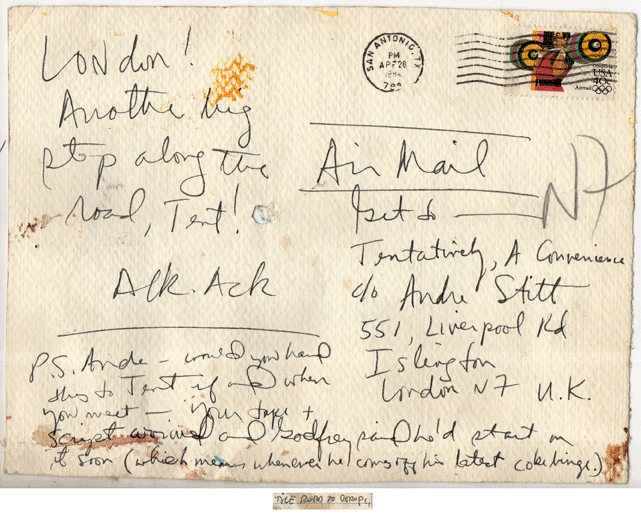 London!
Another big
step along the
road, Tent!
Ack. Ack
SAN ANTONIO, TX
PM
APR 28
USA
40c
Airmail
Air Mail
N7
Get to
Tentatively, A Convenience
c/o Andre Stitt
551, Liverpool Rd
Islington
London N7 U.K.
P.S. Andre - would you hand
this to Tent if and when
you meet - Your tape +
script arrived and Godfrey said he'd start on
it soon (which means whenever he comes off his latest coke binge.)
THE ROAD TO